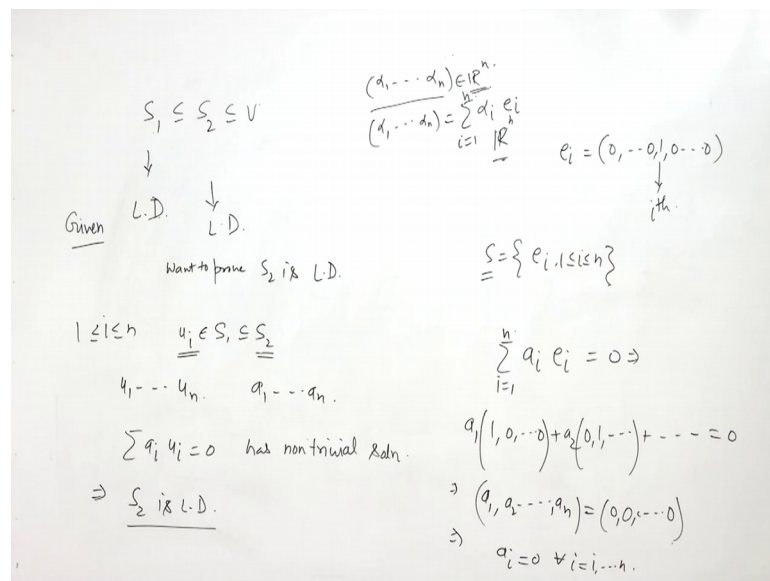 S₁ ⊆ S₂ ⊆ V
↓ ↓
Given L.D. L.D.
Want to prove S₂ is L.D.
1 ≤ i ≤ n u_i ∈ S₁ ⊆ S₂
u₁ --- u_n. a₁ --- a_n.
∑ a_i u_i = 0 has non trivial soln.
⇒ S₂ is L.D.
(α₁, --- α_n) ∈ ℝⁿ.
(α₁, --- α_n) = ∑_{i=1}^{n} α_i e_i
ℝⁿ
e_i = (0, --0,1,0---0)
↓
ith.
S = { e_i, 1≤i≤n }
∑_{i=1}^{n} a_i e_i = 0 ⇒
a₁(1,0,---0) + a₂(0,1,---) + ---- = 0
⇒ (a₁, a₂----, a_n) = (0,0,---0)
⇒ a_i = 0 ∀ i = i, ---n.